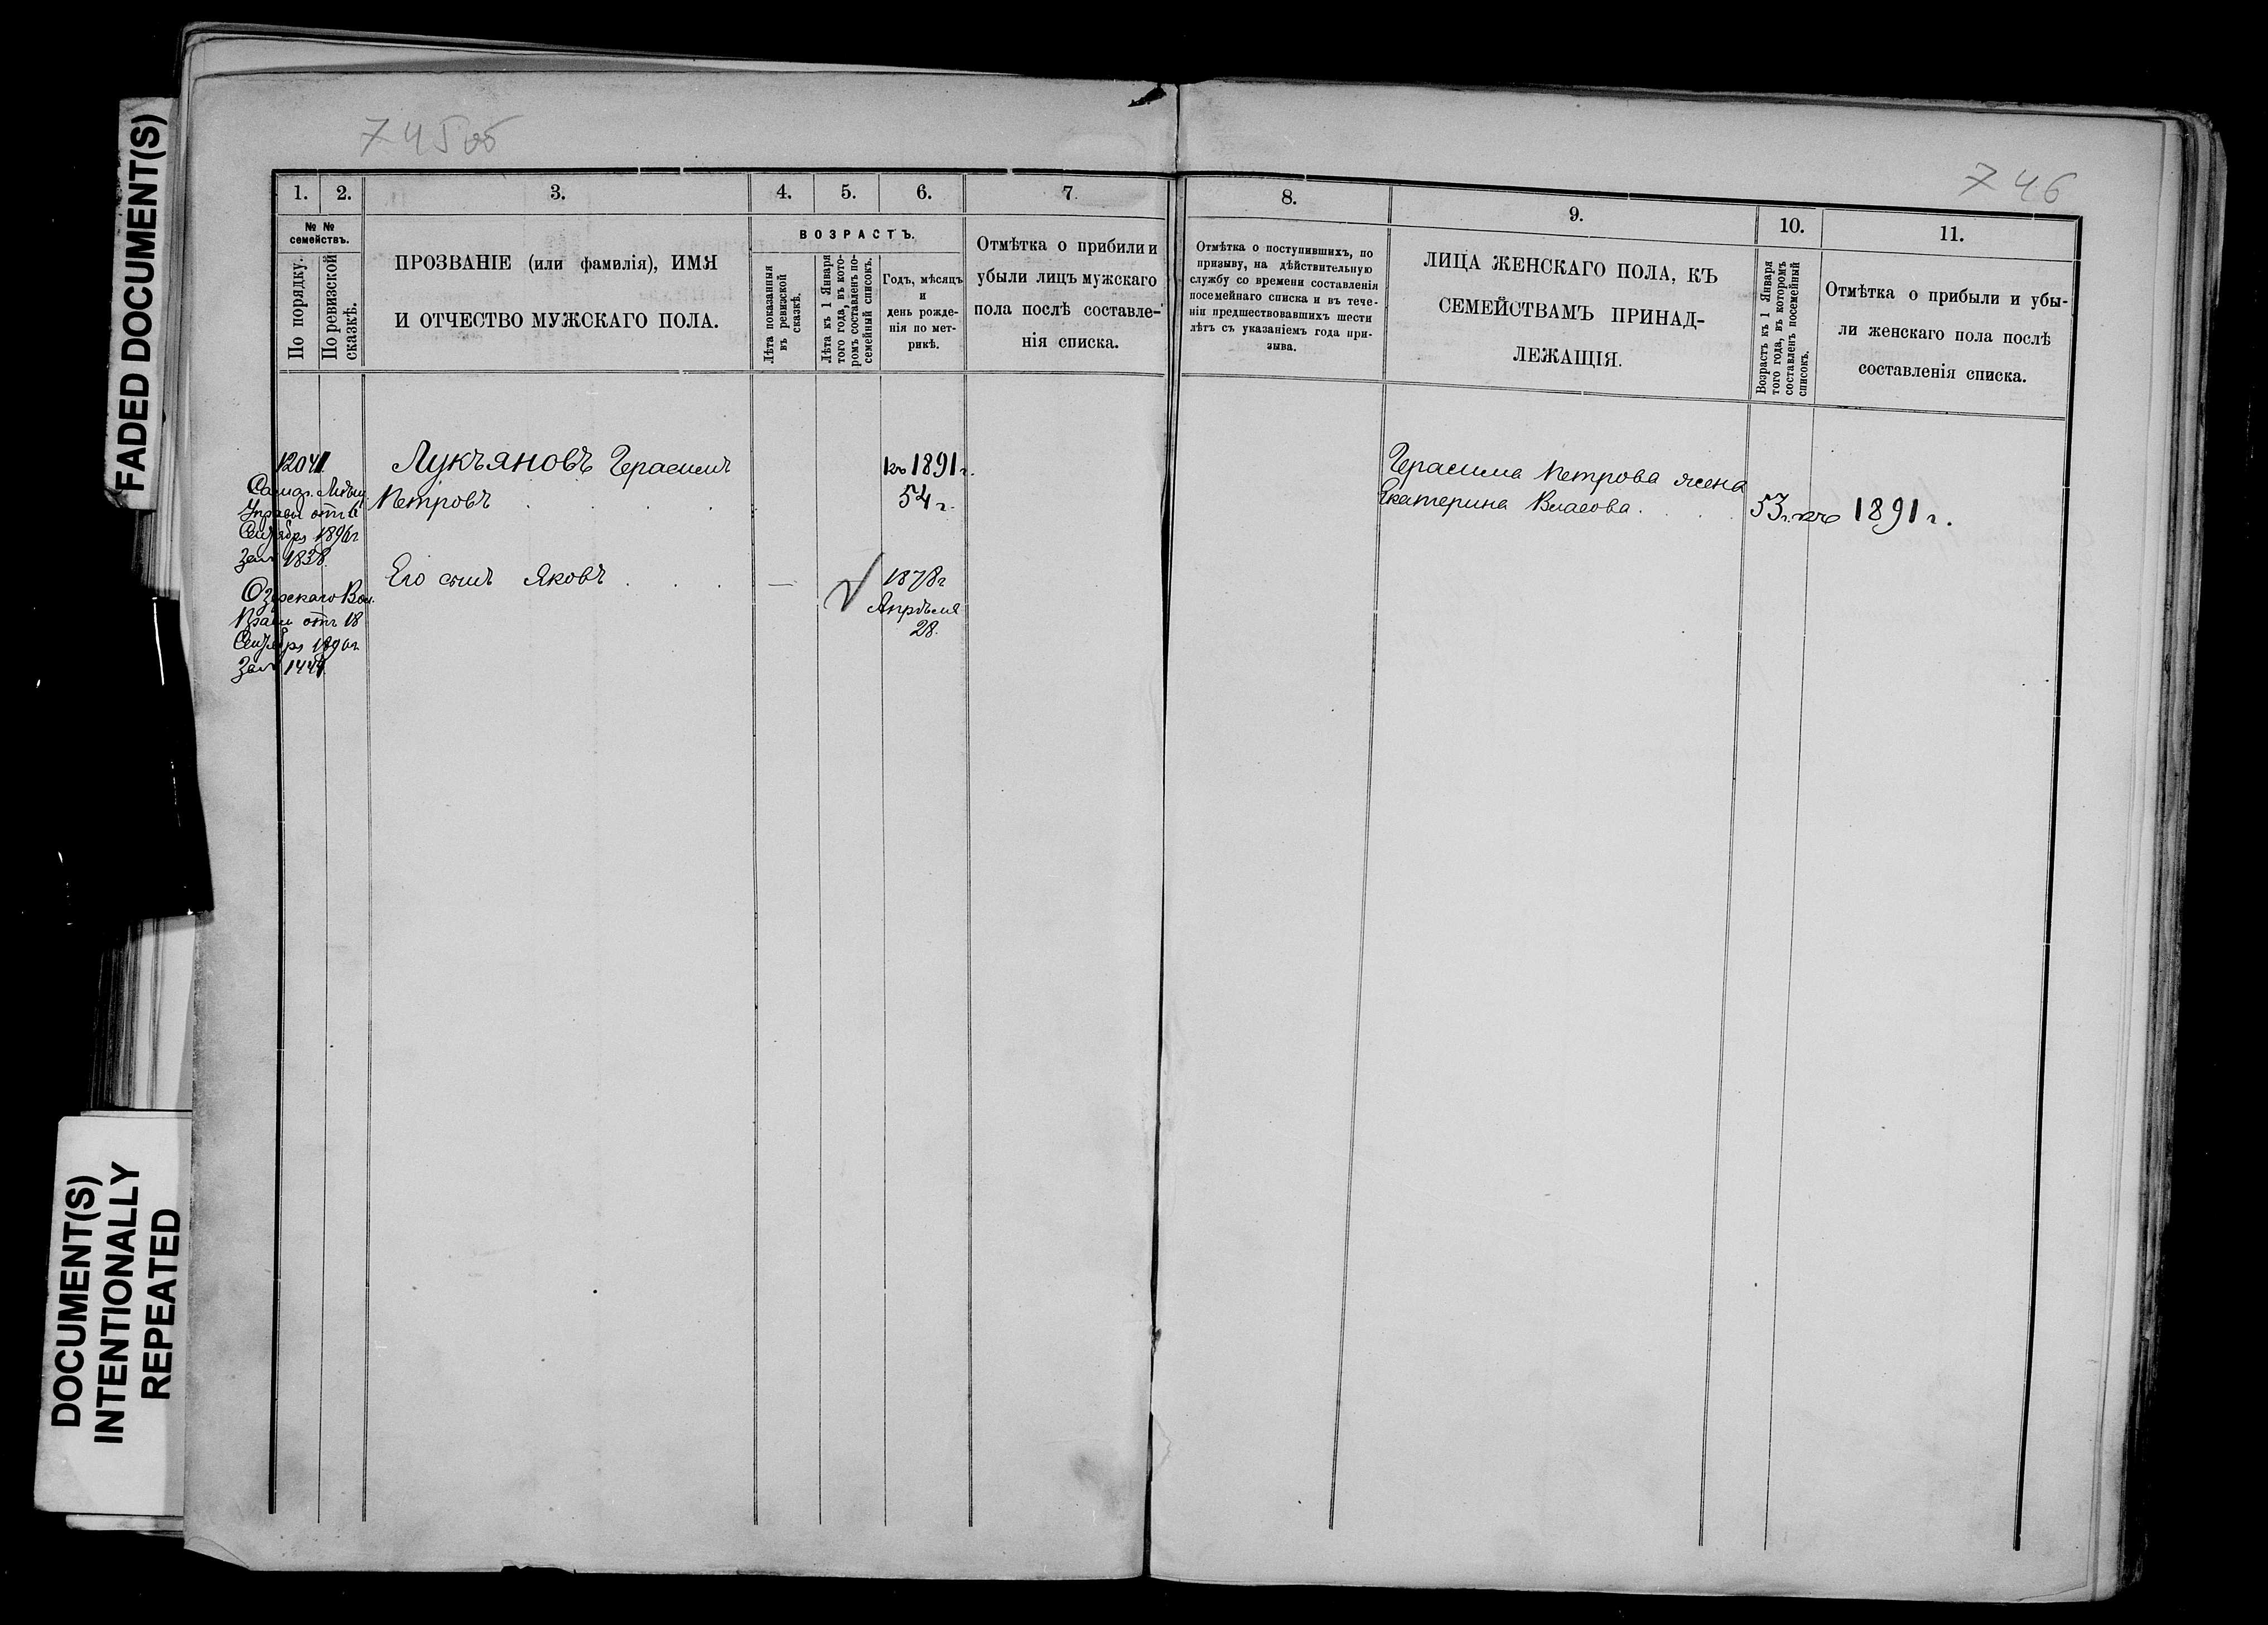 FADED DOCUMENT(S)
DOCUMENT(S)
INTENTIONALLY
REPEATED
745 об
746
1.
2.
3.
4.
5.
6.
7.
№ №
семействъ.
По порядку.
По ревизской
сказкѣ.
ПРОЗВАНІЕ (или фамилія), ИМЯ
И ОТЧЕСТВО МУЖСКАГО ПОЛА.
ВОЗРАСТЪ.
Лѣта показанныя
въ ревизской
сказкѣ.
Лѣта къ 1 Января
того года, въ кото-
ромъ составленъ по-
семейный списокъ.
Годъ, мѣсяцъ
и
день рожде-
нія по мет-
рикѣ.
Отмѣтка о прибыли и
убыли лицъ мужскаго
пола послѣ составле-
нія списка.
8.
9.
10.
11.
Отмѣтка о поступившихъ, по
призыву, на дѣйствительную
службу со времени составленія
посемейнаго списка и въ тече-
ніи предшествовавшихъ шести
лѣтъ съ указаніемъ года при-
зыва.
ЛИЦА ЖЕНСКАГО ПОЛА, КЪ
СЕМЕЙСТВАМЪ ПРИНАД-
ЛЕЖАЩІЯ.
Возрастъ къ 1 Января
того года, въ которомъ
составленъ посемейный
списокъ.
Отмѣтка о прибыли и убы-
ли женскаго пола послѣ
составленія списка.
1204
Лукъяновъ Герасимъ
Петровъ
въ 1891 г.
54 г.
Герасима Петрова жена
Екатерина Власова.
53 г. въ 1891 г.
Самар. Мѣщ.
Управы отъ 6
Сентябр 1896 г
за № 1838.
Его сынъ Яковъ
—
1878 г
Апрѣля
28.
Озерскаго Вол.
Прав отъ 18
Сентябр 1896 г
за № 1449.